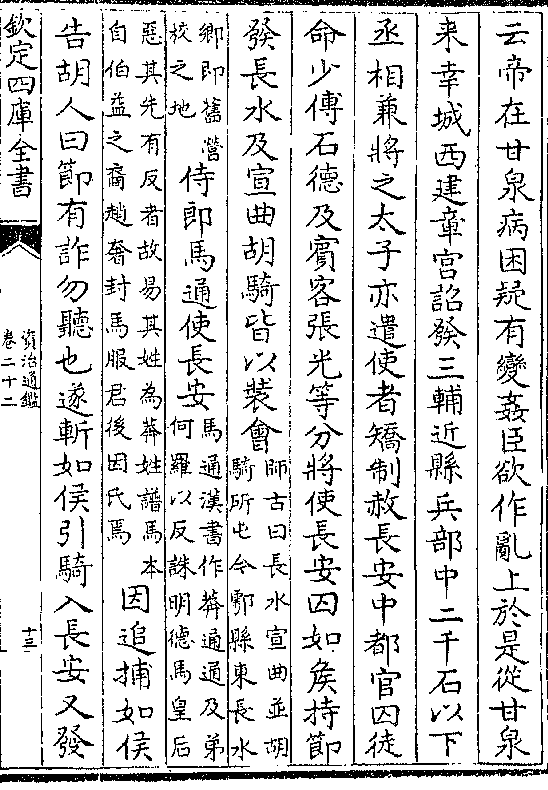 云帝在甘泉病困疑有變姦臣欲作亂上於是從甘泉
来幸城西建章宮詔發三輔近縣兵部中二千石以下
丞相兼將之太子亦遣使者矯制赦長安中都官囚徒
命少傅石德及賓客張光等分將使長安囚如矦持節
發長水及宣曲胡騎皆以装會師古曰長水宣曲並胡
騎所屯今鄠縣東長水
鄉即舊營
校之地
侍郎馬通使長安馬通漢書作莽通通及弟
何羅以反誅明德馬皇后
惡其先有反者故易其姓為莽姓譜馬本
自伯益之裔趙奢封馬服君後因氏焉
因追捕如侯
告胡人曰節有詐勿聽也遂斬如侯引騎入長安又發
欽定四庫全書
資治通鑑
卷二十二
十三